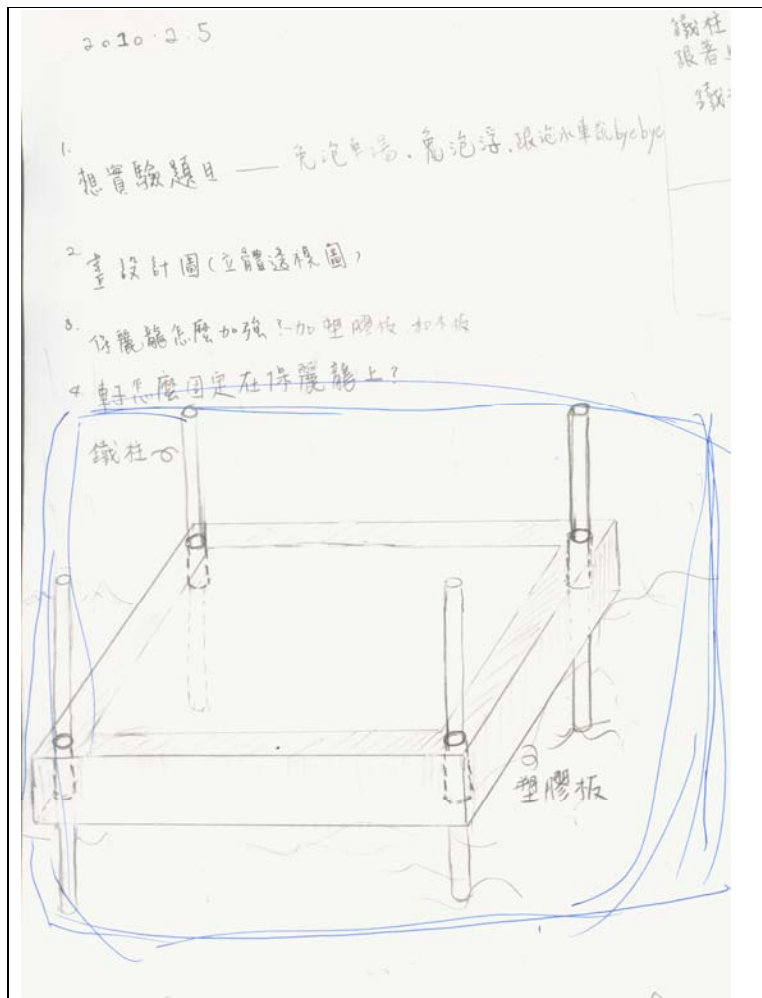 2010.2.5
鐵柱
跟著
鐵
1. 想實驗題目 — 免泡車湯、免泡浮、跟泡水車說byebye
2. 畫設計圖(立體透視圖)
3. 保麗龍怎麼加強?-加塑膠板 和木板
4 車子怎麼固定在保麗龍上?
鐵柱
塑膠板